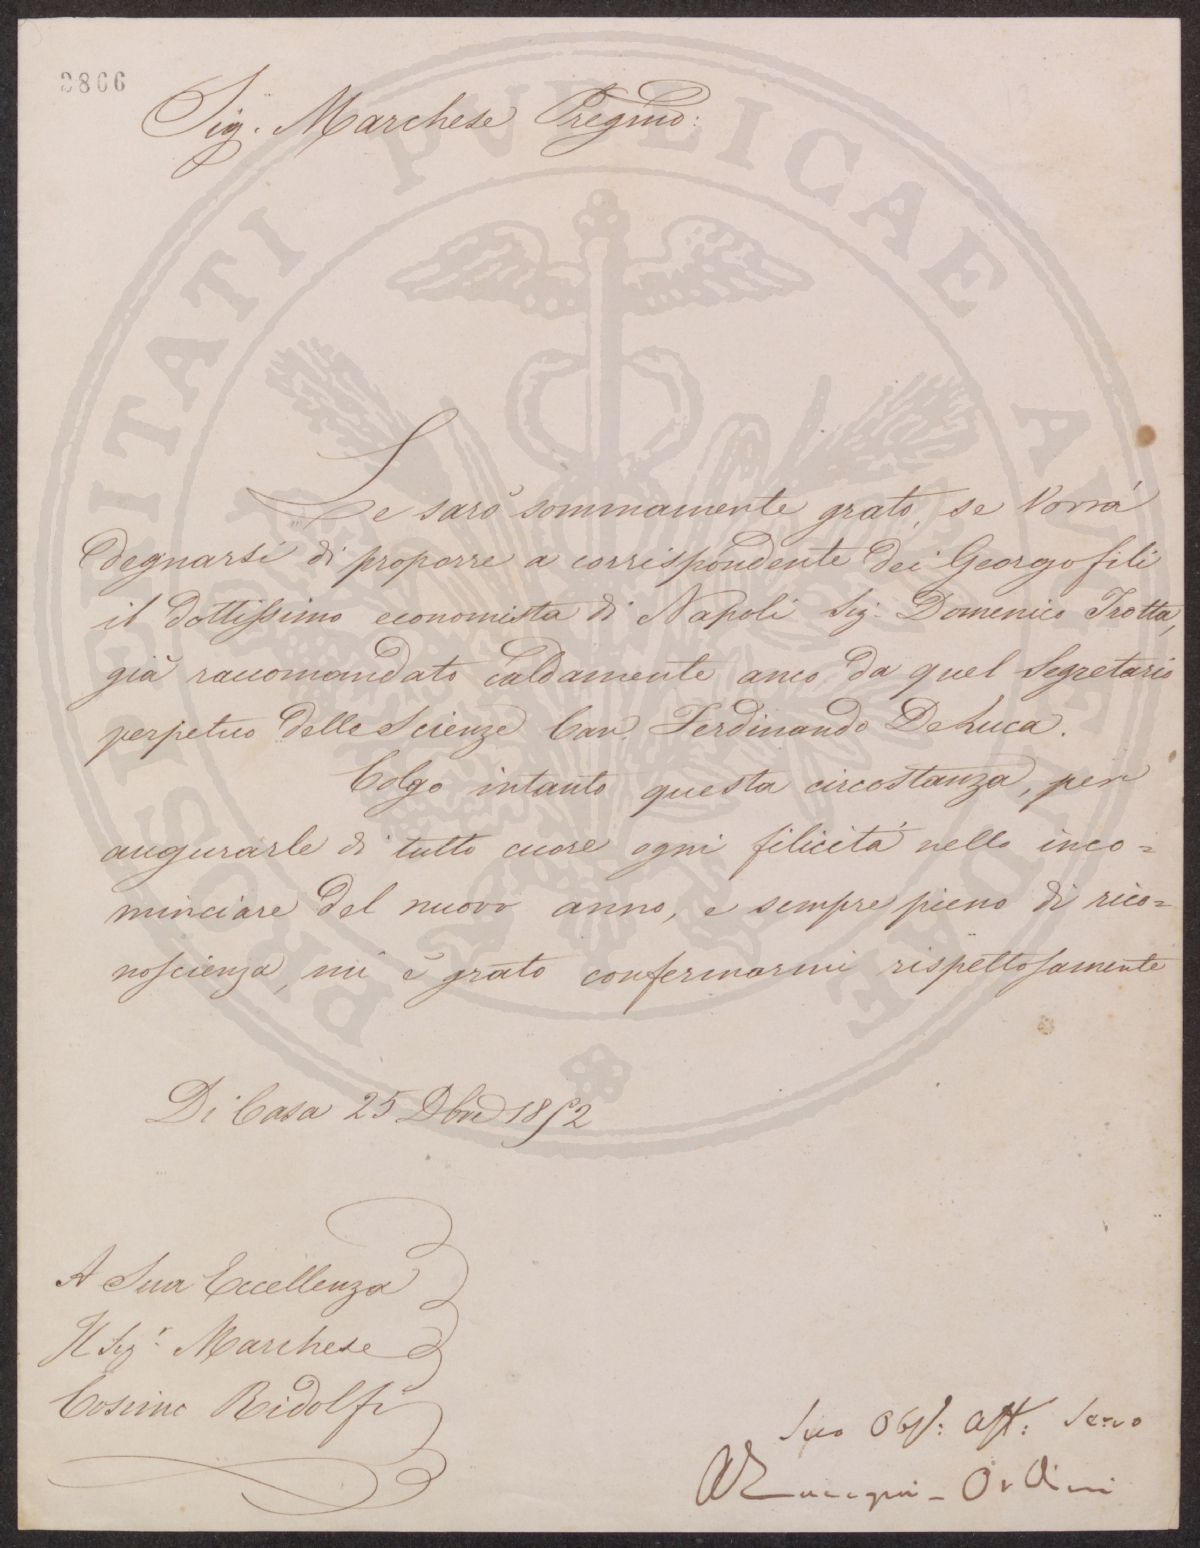 3866
Sig. Marchese Pregmo:
PROSPERITATI PVBLICAE AVGENDAE
Le sarò sommamente grato, se Vorrà
degnarsi di proporre a corrispondente dei Georgofili
il dottissimo economista di Napoli Sig: Domenico Trotta,
già raccomandato caldamente anco da quel Segretario
perpetuo delle Scienze Cav. Ferdinando De Luca.
Colgo intanto questa circostanza, per
augurarle di tutto cuore ogni filicità nello inco=
minciare del nuovo anno, e sempre pieno di rico=
noscienza, mi è grato confermarmi rispettosamente
Di Casa 25 Dbre 1852
A Sua Eccellenza
Il Sigr. Marchese
Cosimo Ridolfi
Suo Obbl: aff: Servo
Orlandini